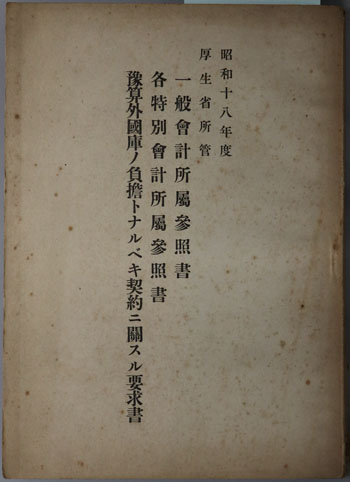 昭和十八年度
厚生省所管
一般會計所屬參照書
各特別會計所屬參照書
豫算外國庫ノ負擔トナルベキ契約ニ關スル要求書